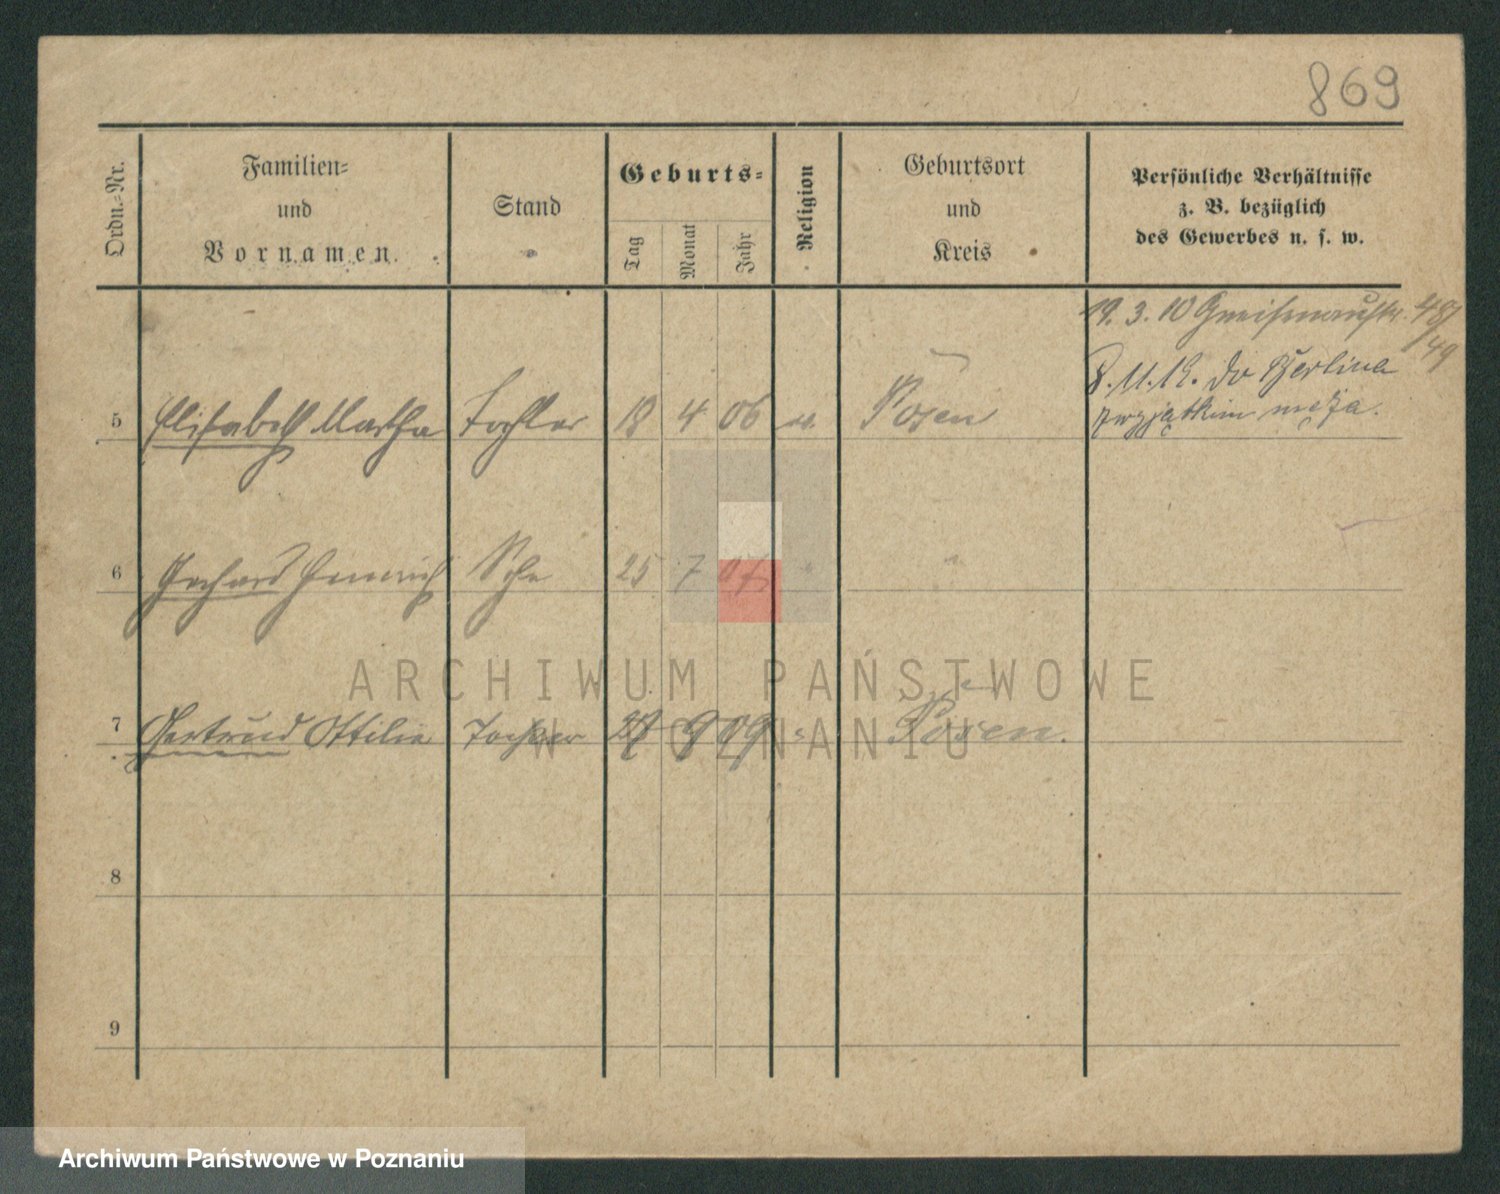 869
Ordn.-Nr.
Familien-
und
Vornamen.
Stand
Geburts-
Tag
Monat
Jahr
Religion
Geburtsort
und
Kreis
Persönliche Verhältnisse
z. B. bezüglich
des Gewerbes u. s. w.
19. 3. 10 Gneisenaustr. 48/
49
8. 11. 19. do Berlina
męża.
5 Elisabeth Martha Tochter 18 4 06 ev. Posen
6 Gerhard Heinrich Sohn 25 7 07 " "
7 Gertrud Ottilie Tochter 9 09 " Posen.
8
9
ARCHIWUM PAŃSTWOWE
W POZNANIU
Archiwum Państwowe w Poznaniu